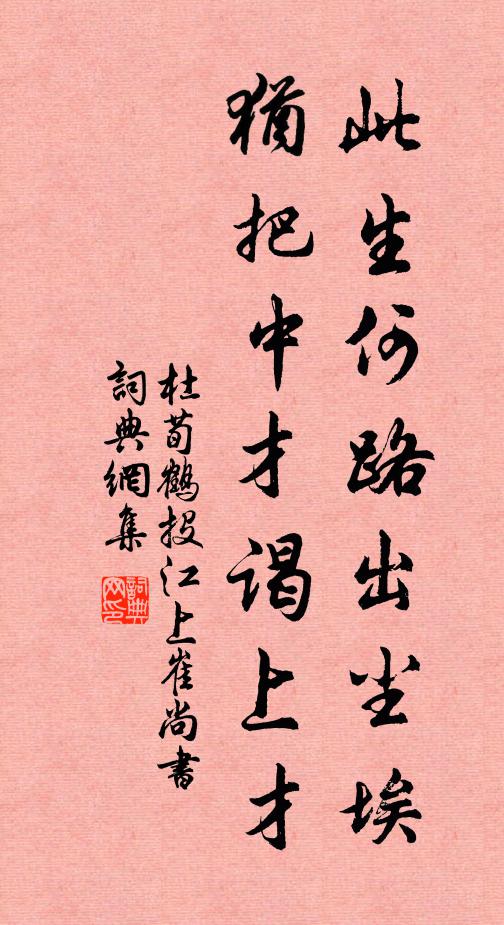 此生何路出尘埃
犹把中才謁上才
杜荀鶴投江上崔尚書
詞典網集
詞典
网印